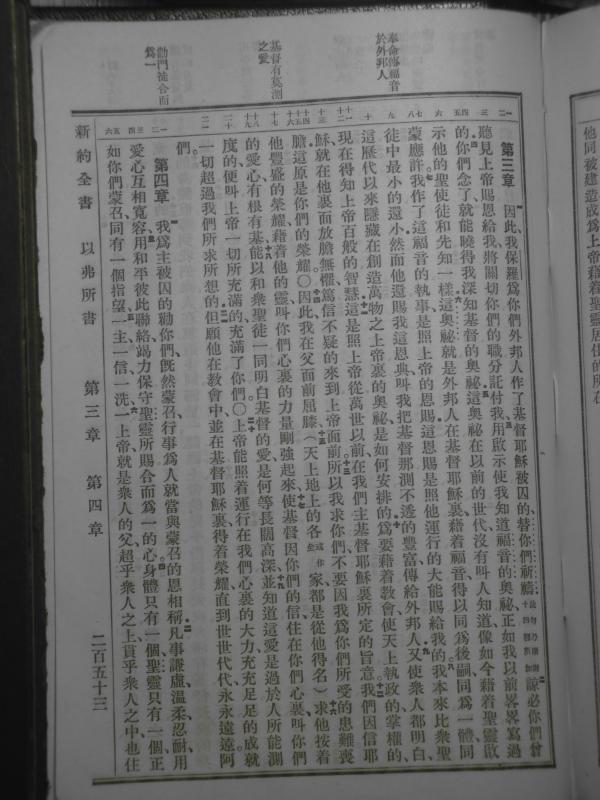 奉命傳福音
於外邦人
基督有莫測
之愛
勸門徒合而
爲一
第三章 因此我保羅爲你們外邦人作了基督耶穌被囚的替你們祈禱
諒必你們曾
聽見上帝賜恩給我將關切你們的職分託付我用啟示使我知道福音的奧祕正如我以前畧畧寫過
的你們念了就能曉得我深知基督的奧祕這奧祕在以前的世代沒有叫人知道像如今藉着聖靈啟
示他的聖使徒和先知一樣這奧祕就是外邦人在基督耶穌裏藉着福音得以同爲後嗣同爲一體同
蒙應許我作了這福音的執事是照上帝的恩賜這恩賜是照他運行的大能賜給我的我本來比衆聖
徒中最小的還小然而他還賜我這恩典叫我把基督那測不透的豐富傳給外邦人又使衆人都明白
這歷代以來隱藏在創造萬物之上帝裏的奧祕是如何安排的爲要藉着教會使天上執政的掌權的
現在得知上帝百般的智慧這是照上帝從萬世以前在我們主基督耶穌裏所定的旨意我們因信耶
穌就在他裏面放膽無懼篤信不疑的來到上帝面前所以我求你們不要因我爲你們所受的患難喪
膽這原是你們的榮耀〇因此我在父面前屈膝（天上地上的各
家都是從他得名）求他按着
他豐盛的榮耀藉着他的靈叫你們心裏的力量剛強起來使基督因你們的信住在你們心裏叫你們
的愛心有根有基能以和衆聖徒一同明白基督的愛是何等長闊高深並知道這愛是過於人所能測
度的便叫上帝一切所充滿的充滿了你們〇上帝能照着運行在我們心裏的大力充充足足的成就
一切超過我們所求所想的但願他在教會中並在基督耶穌裏得着榮耀直到世世代代永永遠遠阿
們。
第四章 我爲主被囚的勸你們旣然蒙召行事爲人就當與蒙召的恩相稱凡事謙虛溫柔忍耐用
愛心互相寬容用和平彼此聯絡竭力保守聖靈所賜合而爲一的心身體只有一個聖靈只有一個正
如你們蒙召同有一個指望一主一信一洗一上帝就是衆人的父超乎衆人之上貫乎衆人之中也住
新約全書 以弗所書 第三章 第四章 二百五十三
他同被建造成爲上帝藉着聖靈居住的所在